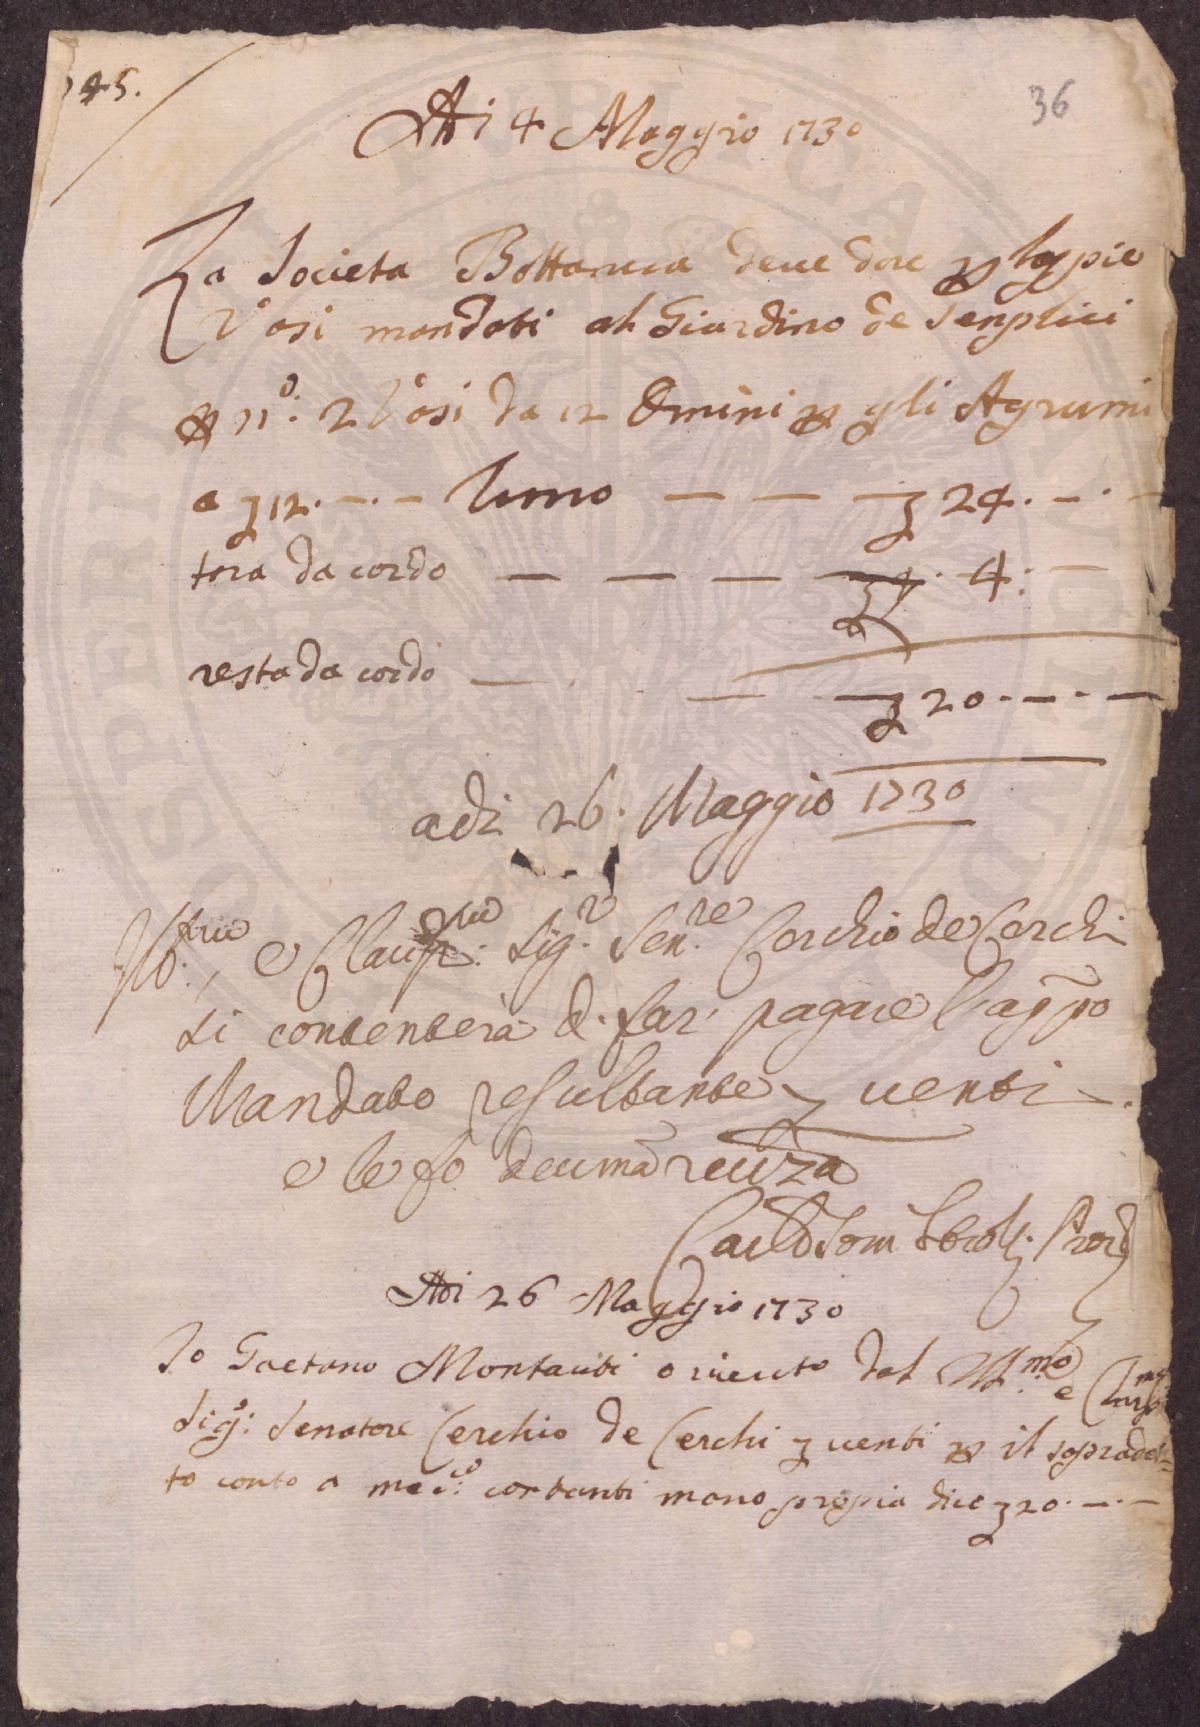 45.
36
Adi 4 Maggio 1730
La Societa Bottanica deue dare per
Vasi mandati al Giardino de Senplici
per n.o: 2 Vasi da 12 Omini per gli Agrumi
a ʒ 12. — . — l'uno — — — ʒ 24. — . —
tara da cordo — — — — 4: —
resta da cordo — — — ʒ 20. — . —
adi 26. Maggio 1730
Ill:mo, e Clariss:mo Sig.r Sen.re Cerchio de Cerchi
si contenterà di far pagare
Mandato resultante ʒ uenti —.
e le fo deuma reuza
Adi 26 Maggio 1730
Io Gaetano Montauti o riceuto dal Ill:mo e Clarss:mo
Sig.r: Senatore Cerchio de Cerchi ʒ uenti per il sopradet=
to conto a me d:o contanti mano propia dico ʒ 20. — . —